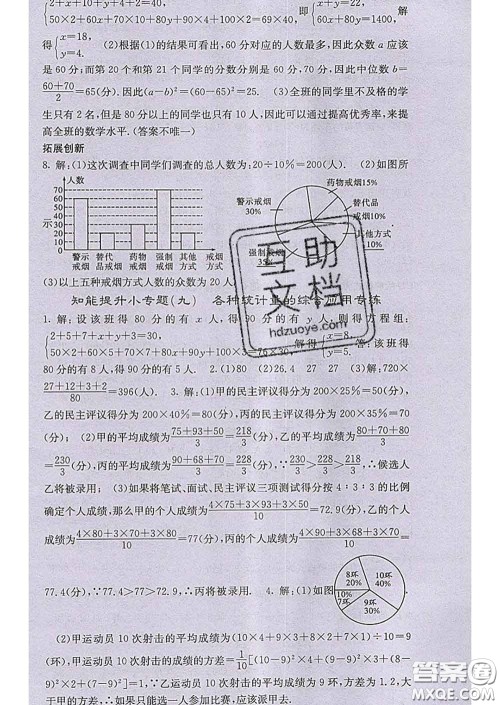 {2+x+10+y+4+2=40,
50×2+60x+70×10+80y+90×4+100×2=40×70,
即
{x+y=22,
60x+80y=1400,
解
得{x=18,
y=4.
(2)根据(1)的结果可看出，60分对应的人数最多，因此众数a应该
是60分；而第20个和第21个同学的分数分别是60分，70分，因此中位数b=
60+70/2=65(分). 因此(a-b)²=(60-65)²=25. (3)全班的同学里不及格的学
生只有2名，但是80分以上的同学也只有10人，因此可以通过提高优秀率，来提
高全班的数学水平. (答案不唯一)
拓展创新
8. 解：(1)这次调查中同学们调查的总人数为：20÷10%=200(人). (2)如图所
示
人数
70
60
50
40
30
20
10
警示戒烟
替代品戒烟
药物戒烟
强制戒烟
其他方式
戒烟方式
药物戒烟15%
警示戒烟30%
替代品戒烟10%
其他方式10%
强制戒烟35%
(3)以上五种戒烟方式人数的众数为20人.
知能提升小专题(九) 各种统计量的综合应用专练
1. 解：设该班得80分的有x人，得90分的有y人，则得方程组：
{2+5+7+x+y+3=30,
50×2+60×5+70×7+80x+90y+100×3=76×30,
解得{x=8,
y=5.
答：该班得
80分的有8人，得90分的有5人. 2.(1)80 (2)26.4 27 27 (3)解：720×
27+12+3+2/80=396(人). 3. 解：(1)甲的民主评议得分为200×25%=50(分)，
乙的民主评议得分为200×40%=80(分)，丙的民主评议得分为200×35%=70
(分)； (2)甲的平均成绩为75+93+50/3=218/3(分)，乙的平均成绩为80+70+80/3
=230/3(分)，丙的平均成绩为90+68+70/3=228/3(分)，∵230/3>228/3>218/3，∴候选人
乙将被录用； (3)如果将笔试、面试、民主评议三项测试得分按4∶3∶3的比例
确定个人成绩，那么甲的个人成绩为4×75+3×93+3×50/10=72.9(分)，乙的个人
成绩为4×80+3×70+3×80/10=77(分)，丙的个人成绩为4×90+3×68+3×70/10=
77.4(分)，∵77.4>77>72.9，∴丙将被录用. 4. 解：(1)如图
8环20%
10环40%
10%
7环
9环30%
(2)甲运动员10次射击的平均成绩为(10×4+9×3+8×2+7×1)÷10=9
(环)，甲运动员10次射击的成绩的方差=1/10[(10-9)²×4+(9-9)²×3+(8-
9)²×2+(7-9)²]=1，∵乙运动员10次射击的平均成绩为9环，方差为1.2，大
于甲的方差，∴如果只能选一人参加比赛，应该派甲去.
互助文档
hdzuoye.com
答案圈
MXQE.COM